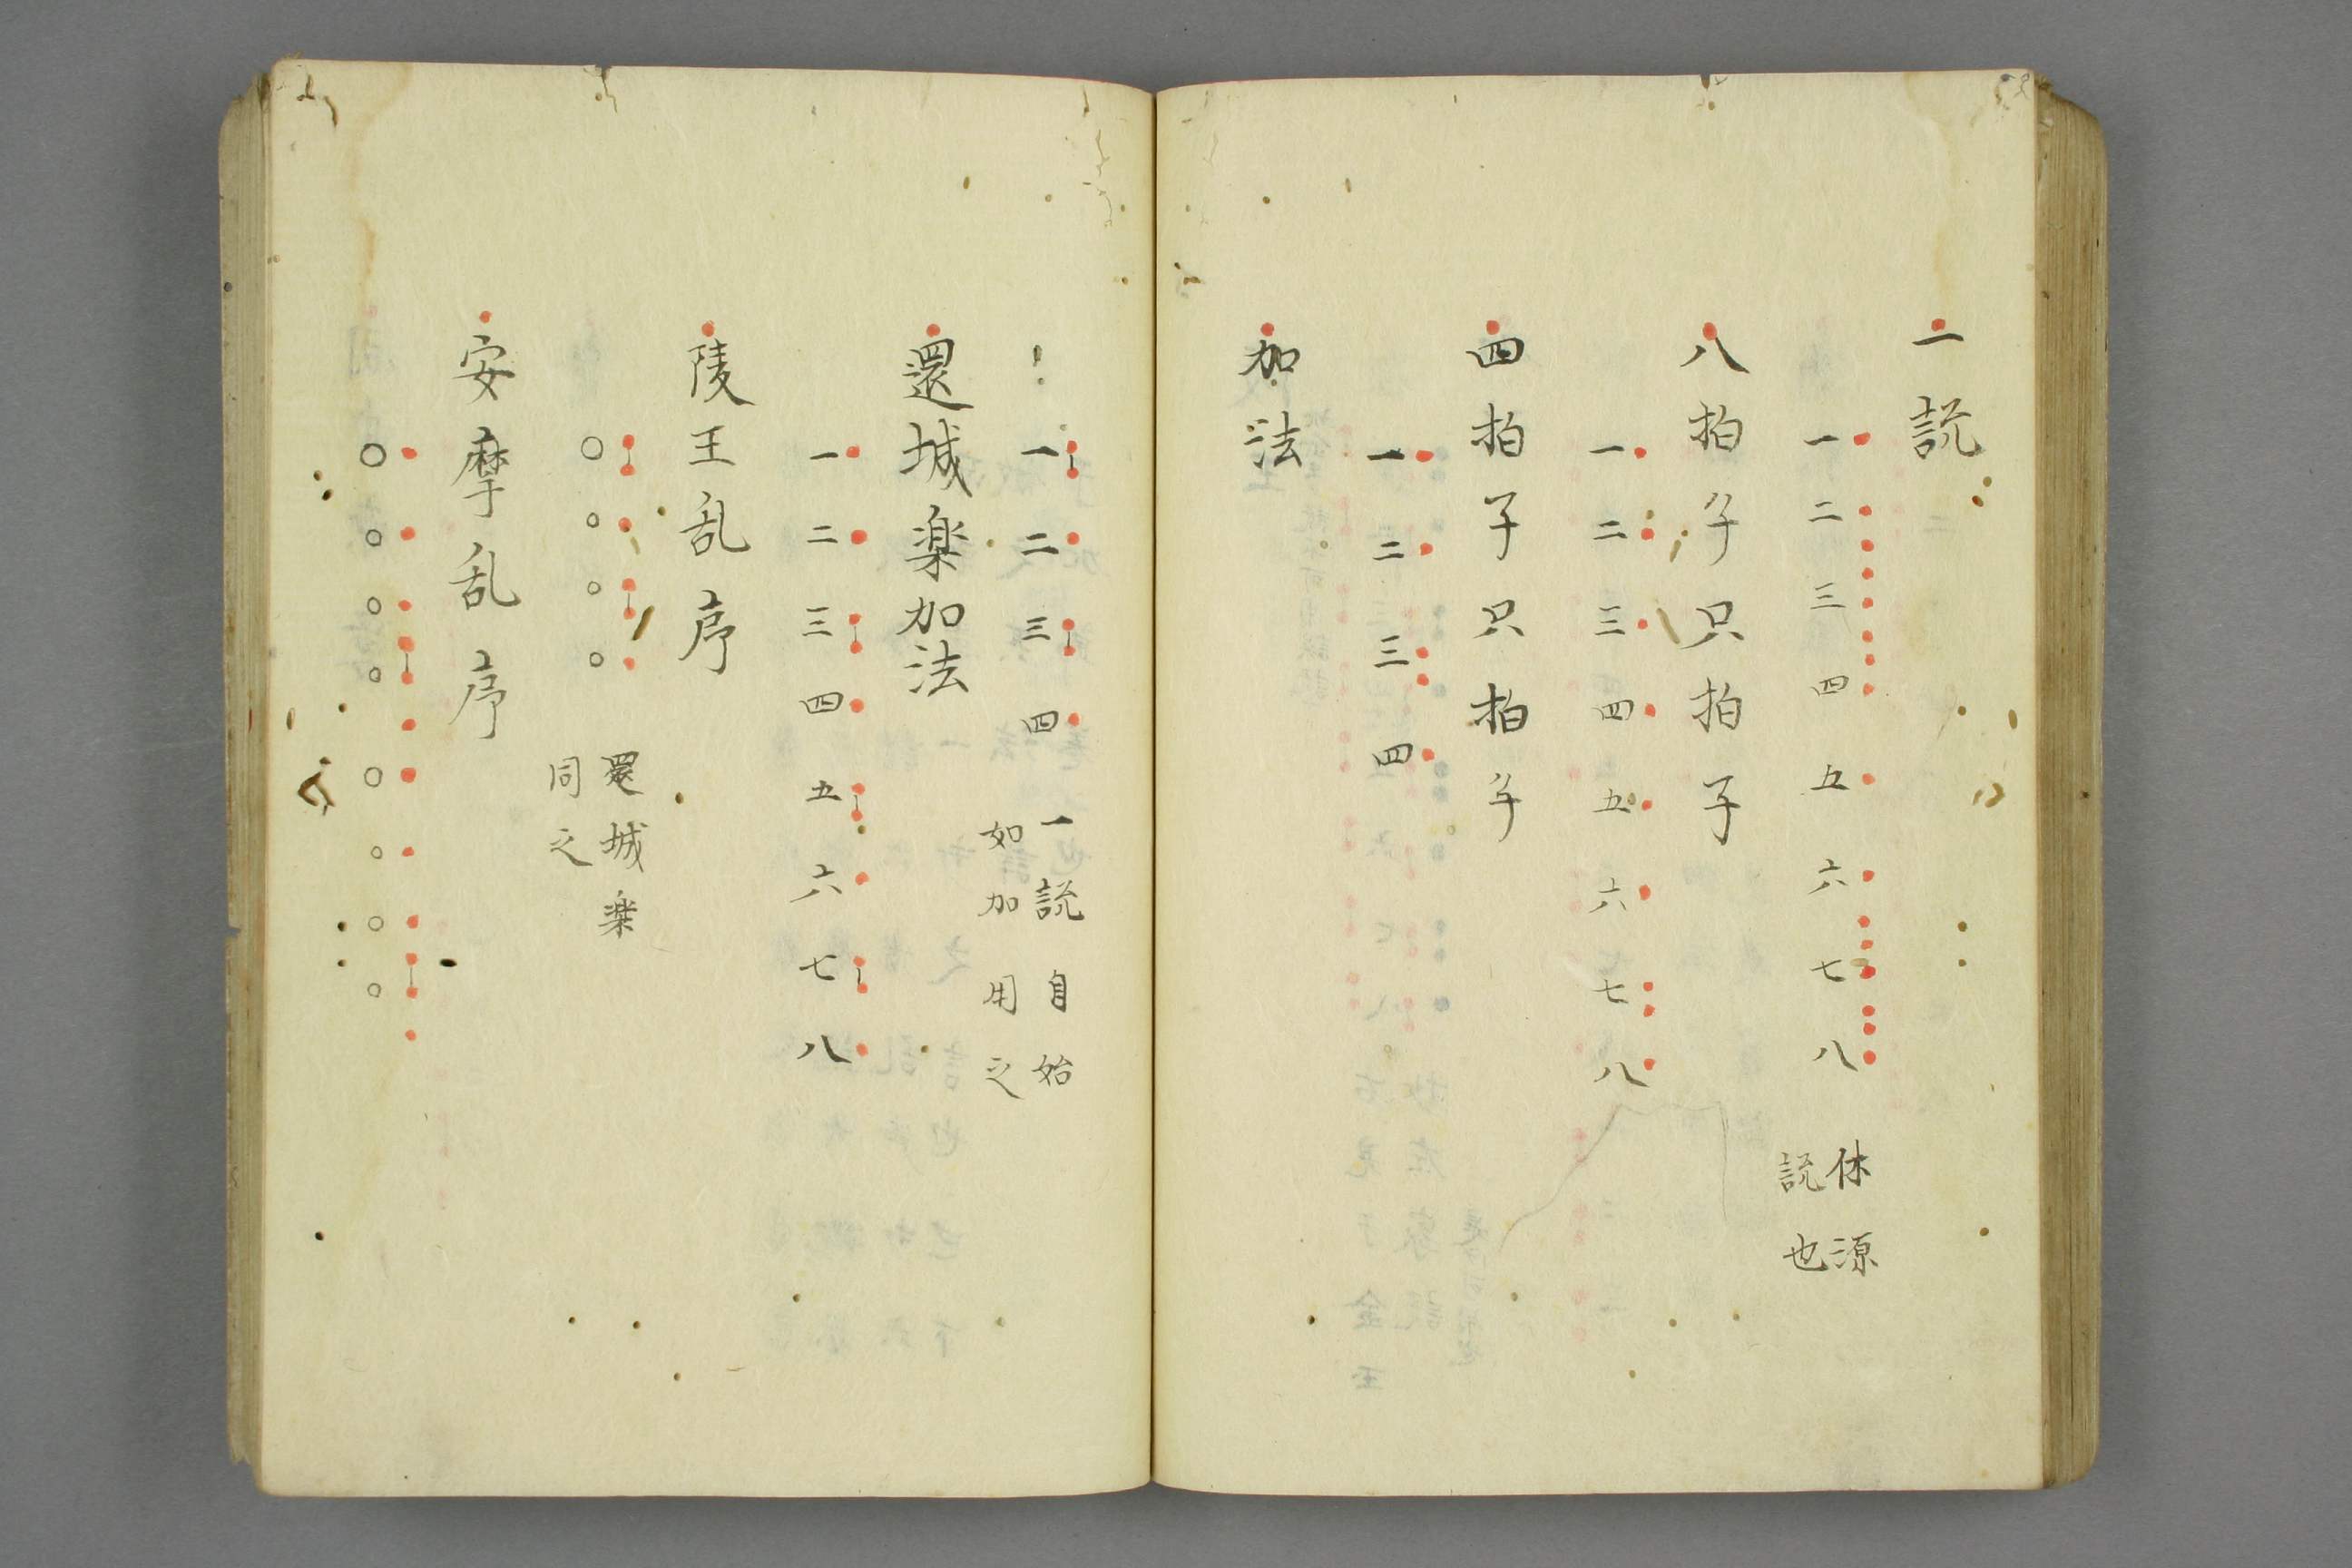 一説
一二三四五六七八 休源
説也
八拍子只拍子
一二三四五六七八
四拍子只拍子
一二三四
加法
一二三四 一説自始
如加用之
還城楽加法
一二三四五六七八
陵王乱序
○○○○ 還城楽
同之
安摩乱序
○○○○○○○○